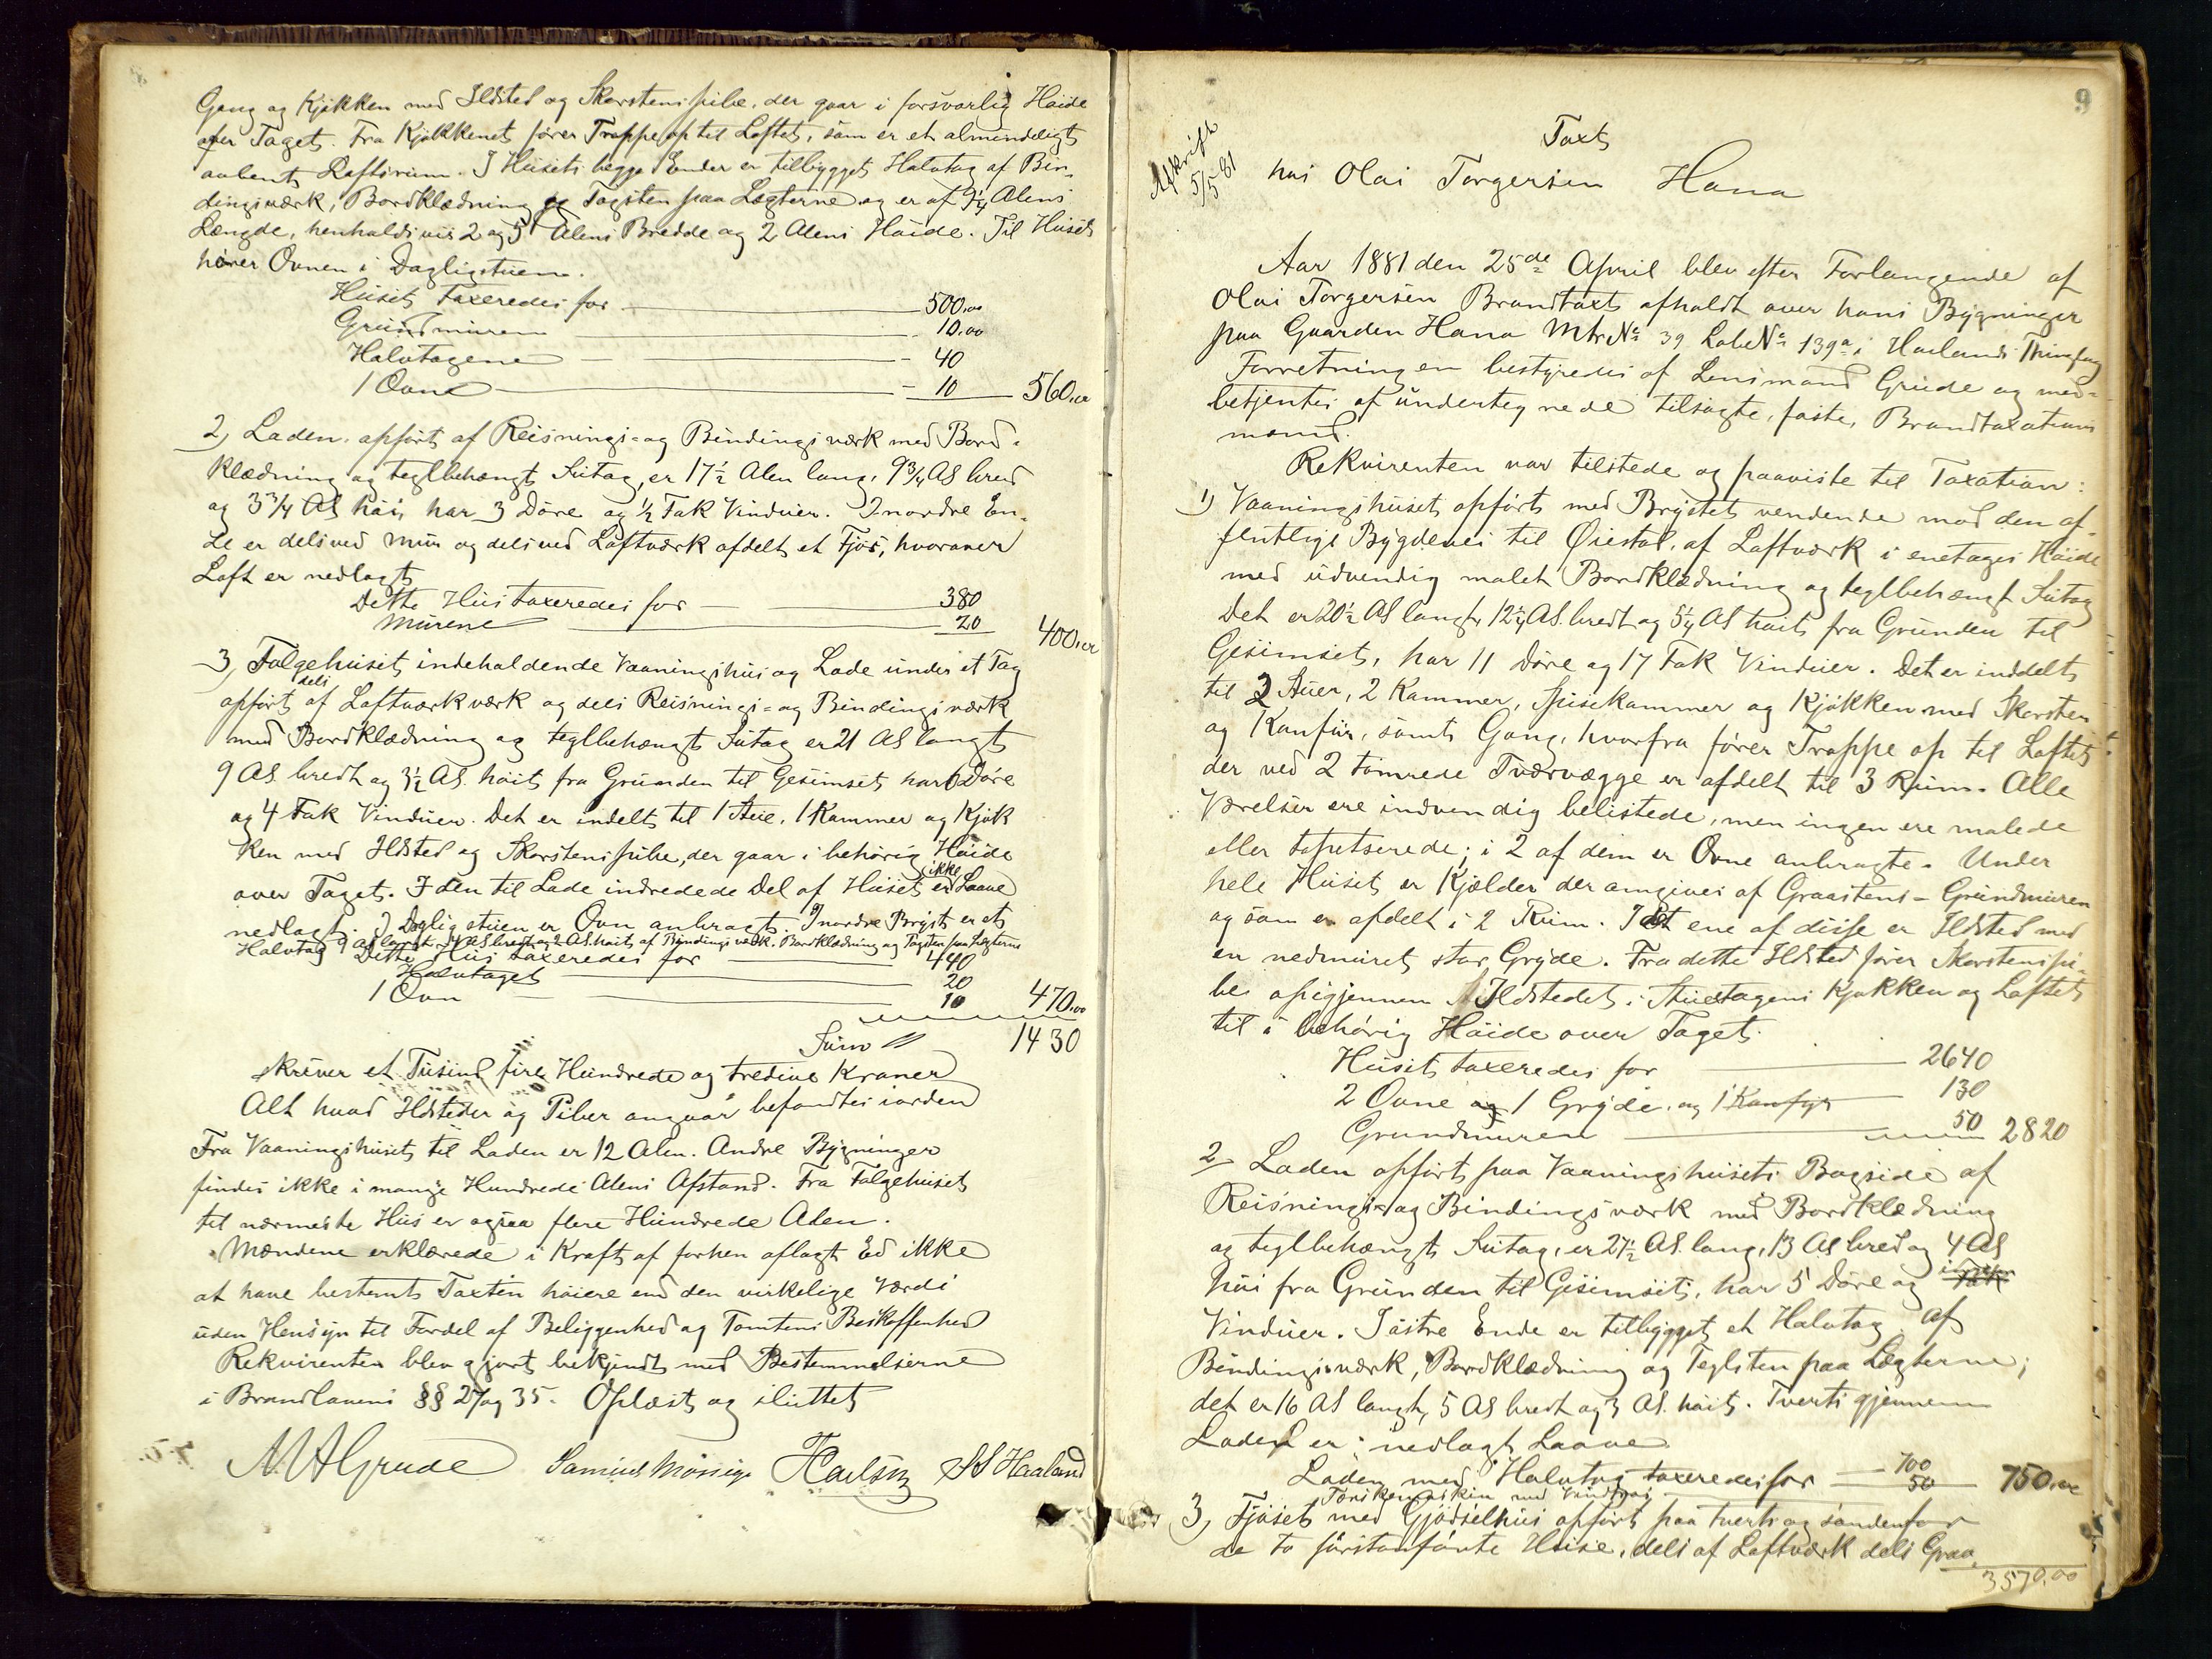 Gang og Kjøkken med Ildsted og Skorstenspibe, der gaar i forsvarlig Høide
over Taget. Fra Kjøkkenet fører Trappe op til Loftet, som er et almindeligt
aabent Loftsrum. I Husets begge Ender er tilbygget Halvtag af Bin-
dingsværk, Bordklædning og Tagsten paa Lægterne og er af 9¼ Alens
Længde, henholdsvis 2 og 5 Alens Bredde og 2 Alens Høide. Til Huset
hører Ovnen i Dagligstuen.
Huset taxeredes for 500.00
Grundmuren 10.00
Halvtagene 40
1 Ovn 10 560.00
2, Laden, opført af Reisnings- og Bindingsværk med Bord-
klædning og teglbehængt Sutag, er 17½ Alen lang, 9¾ Al bred
og 3¾ Al høi, har 3 Døre og ½ Fak Vinduer. I nordre En-
de er dels ved Mur og dels ved Laftværk afdelt et Fjøs, hvorover
Loft er nedlagt
Dette Hus taxeredes for 380
Murene 20 400.00
3, Folgehuset, indeholdende Vaaningshus og Lade under et Tag
dels
opført af Laftværkværk og dels Reisnings- og Bindingsværk
med Bordklædning og teglbehængt Sutag er 21 Al langt
9 Al. bredt og 3½ Al. høit fra Grunden til Gesimset har 6 Døre
og 4 Fak Vinduer. Det er indelt til 1 Stue, 1 Kammer og Kjøk
ken med Ildsted og Skorstenspibe, der gaar i behørig Høide
ikke
over Taget. I den til Lade indredede Del af Huset er Laave
nedlagt. I Dagligstuen er Ovn anbragt. I nordre Bryst er et
Halvtag 9 Al langt, Al bredt og 2 Al. høit af Bindingsværk. Bordklædning og Tagsten paa Lægterne
Dette Hus taxeredes for 440
Halvtaget 20
1 Ovn 10 470.00
Sum 1430
skriver et Tusind fire Hundrede og tredive Kroner
Alt hvad Ildsteder og Piber angaar befandtes iorden
Fra Vaaningshuset til Laden er 12 Alen. Andre Bygninger
findes ikke i mange Hundrede Alens Afstand. Fra Folgehuset
til nærmeste Hus er ogsaa flere Hundrede Alen.
Mændene erklærede i Kraft af forhen aflagt Ed ikke
at have bestemt Taxten høiere end den virkelige Værdi
uden Hensyn til Fordel af Beliggenhed og Tomtens Beskaffenhed
Rekvirenten blev gjort bekjendt med Bestemmelserne
i Brandlovens §§ 27 og 35. Oplæst og sluttet
Grude Samuel Mossige SS Haaland
9
Afskrift
5/5 81
Taxt
hos Olai Torgersen Hana
Aar 1881 den 25de April blev efter Forlangende af
Olai Torgersen Brandtaxt afholdt over hans Bygninger
paa Gaarden Hana Mtr No 39 Løbe No 139a i Høilands Thinglag
Forretningen bestyredes af Lensmand Grude og med-
betjentes af undertegnede tilsagte, faste, Brandtaxations
mænd.
Rekvirenten var tilstede og paaviste til Taxation:
1) Vaaningshuset opført med Brystet vendende mod den of-
fentlige Bygdevei til Øiestad, af Laftværk i enetages Høide
med udvendig malet Bordklædning og teglbehængt Sutag
Det er 20½ Al langt, 12¼ Al. bredt og 5¼ Al høit fra Grunden til
Gesimset, har 11 Døre og 17 Fak Vinduer. Det er inddelt
til 3 Stuer, 2 Kammer, Spisekammer og Kjøkken med Skorsten
og Komfur, samt Gang, hvorfra fører Trappe op til Loftet
der ved 2 tømrede Tværvægge er afdelt til 3 Rum. Alle
Værelser ere indvendig belistede, men ingen ere malede
eller tapetserede; i 2 af dem er Ovne anbragte. Under
hele Huset er Kjælder der omgives af Graastens-Grundmuren
og som er afdelt i 2 Rum. I det ene af disse er Ildsted med
en nedmuret stor Gryde. Fra dette Ildsted fører Skorstenspi-
be opigjennem Ildstedet i Stuetagens Kjøkken og Loftet
til i behørig Høide over Taget.
Huset taxeredes for 2640
2 Ovne og 1 Gryde, og 1 Komfyr 130
Grundmuren 50 2820
2 Laden opført paa Vaaningshusets Bagside af
Reisnings- og Bindingsværk med Bordklædning
og teglbehængt Sutag, er 27½ Al. lang, 13 Al bred og 4 Al
høi fra Grunden til Gesimset, har 5 Døre og
Vinduer. I østre Ende er tilbygget et Halvtag af
Bindingsværk, Bordklædning og Teglsten paa Lægterne;
det er 16 Al langt, 5 Al bredt og 3 Al. høit. Tverts gjennem
Laden er nedlagt Laave
Laden med Halvtag taxeredes for 700
Tærskemaskin med Vandhjul 50 750.00
3, Fjøset med Gjødselhus opført paa tverts og søndenfor
de to førstanførte Huse, dels af Laftværk dels Graa
3570.00